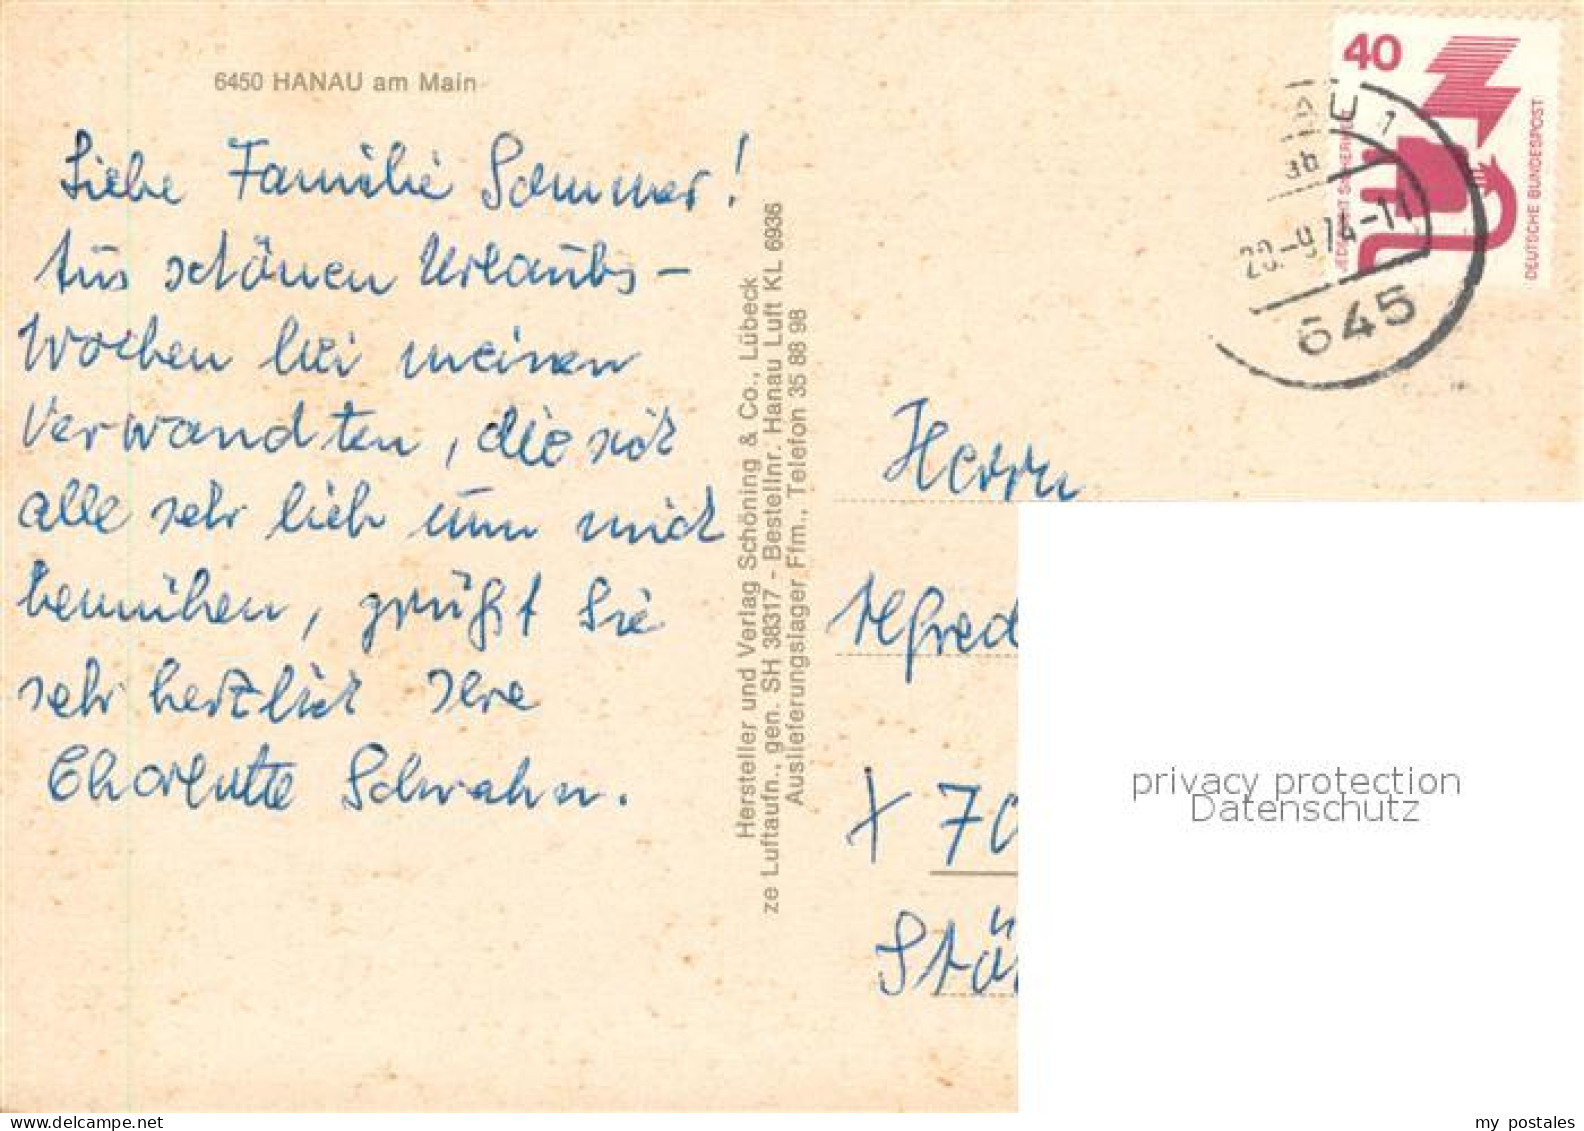 6450 HANAU am Main
Liebe Familie Sommer!
Aus schönen Urlaubs-
wochen bei meinen
Verwandten, die sich
alle sehr lieb um mich
bemühen, grüßt Sie
sehr herzlich Ihre
Charlotte Schwahn.
Hersteller und Verlag Schöning & Co., Lübeck
ze Luftaufn., gen. SH 38317 - Bestellnr. Hanau Luft KL 6936
Auslieferungslager Ffm., Telefon 35 88 98
40
DEUTSCHE BUNDESPOST
645
Herrn
Alfred
X 70
Stö
privacy protection
Datenschutz
my postales